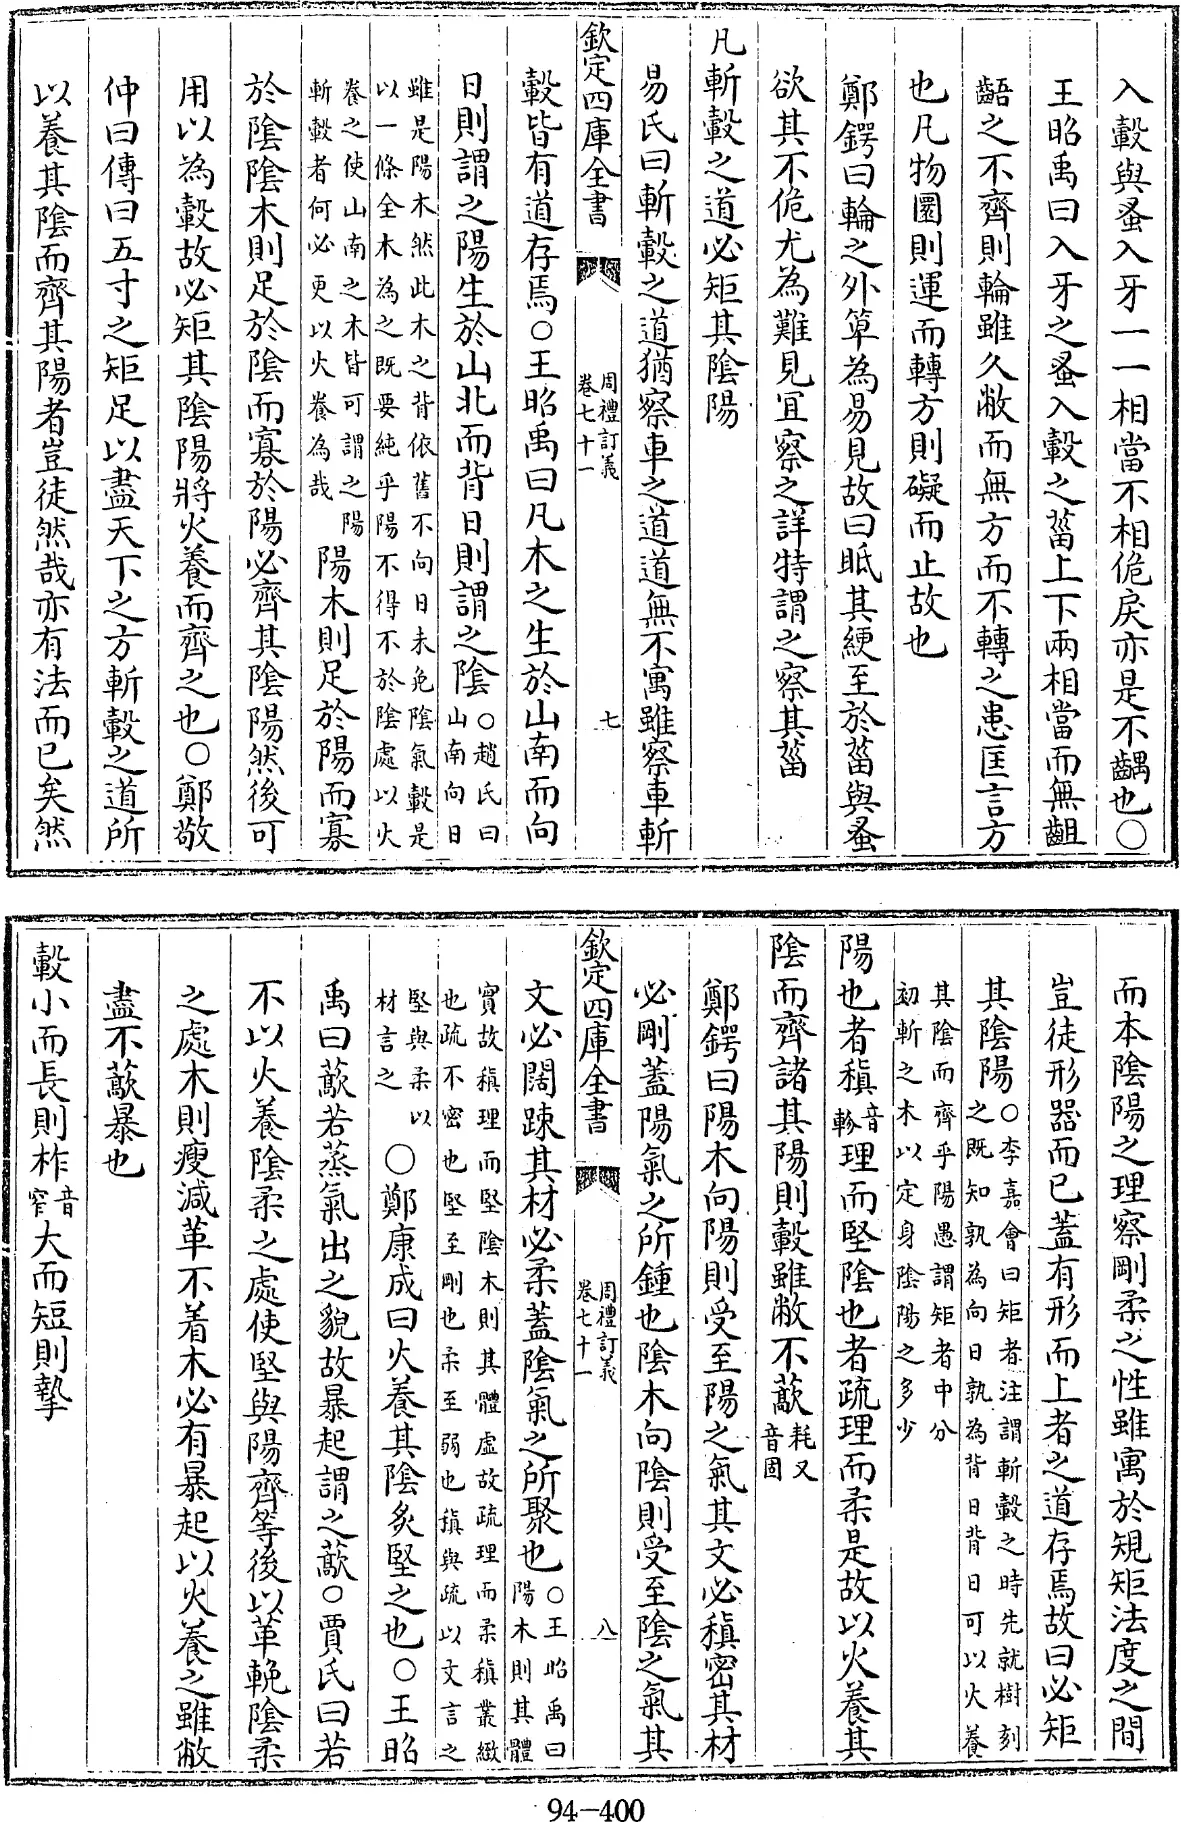 入轂與蚤入牙一一相當不相佹戾亦是不齵也○
王昭禹曰入牙之蚤入轂之菑上下兩相當而無齟
齬之不齊則輪雖久敝而無方而不轉之患匡言方
也凡物圜則運而轉方則礙而止故也
鄭鍔曰輪之外箄為易見故曰眡其綆至於菑與蚤
欲其不佹尤為難見宜察之詳特謂之察其菑
凡斬轂之道必矩其陰陽
易氏曰斬轂之道猶察車之道道無不寓雖察車斬
欽定四庫全書
周禮訂義
卷七十一
七
轂皆有道存焉○王昭禹曰凡木之生於山南而向
日則謂之陽生於山北而背日則謂之陰
○趙氏曰
山南向日
雖是陽木然此木之背依舊不向日未免陰氣轂是
以一條全木為之既要純乎陽不得不於陰處以火
養之使山南之木皆可謂之陽
斬轂者何必更以火養為哉
陽木則足於陽而寡
於陰陰木則足於陰而寡於陽必齊其陰陽然後可
用以為轂故必矩其陰陽將火養而齊之也○鄭敬
仲曰傳曰五寸之矩足以盡天下之方斬轂之道所
以養其陰而齊其陽者豈徒然哉亦有法而已矣然
而本陰陽之理察剛柔之性雖寓於規矩法度之間
豈徒形器而已蓋有形而上者之道存焉故曰必矩
其陰陽
○李嘉會曰矩者注謂斬轂之時先就樹刻
之既知孰為向日孰為背日背日可以火養
其陰而齊乎陽愚謂矩者中分
初斬之木以定身陰陽之多少
陽也者稹
音
軫
理而堅陰也者疏理而柔是故以火養其
陰而齊諸其陽則轂雖敝不藃
耗又
音圊
鄭鍔曰陽木向陽則受至陽之氣其文必稹密其材
必剛蓋陽氣之所鍾也陰木向陰則受至陰之氣其
欽定四庫全書
周禮訂義
卷七十一
八
文必闊踈其材必柔蓋陰氣之所聚也
○王昭禹曰
陽木則其體
實故稹理而堅陰木則其體虛故疏理而柔稹叢緻
也疏不密也堅至剛也柔至弱也稹與疏以文言之
堅與柔以
材言之
○鄭康成曰火養其陰炙堅之也○王昭
禹曰藃若蒸氣出之貌故暴起謂之藃○賈氏曰若
不以火養陰柔之處使堅與陽齊等後以革鞔陰柔
之處木則瘦減革不着木必有暴起以火養之雖敝
盡不藃暴也
轂小而長則柞
音
窄
大而短則摯
94-400